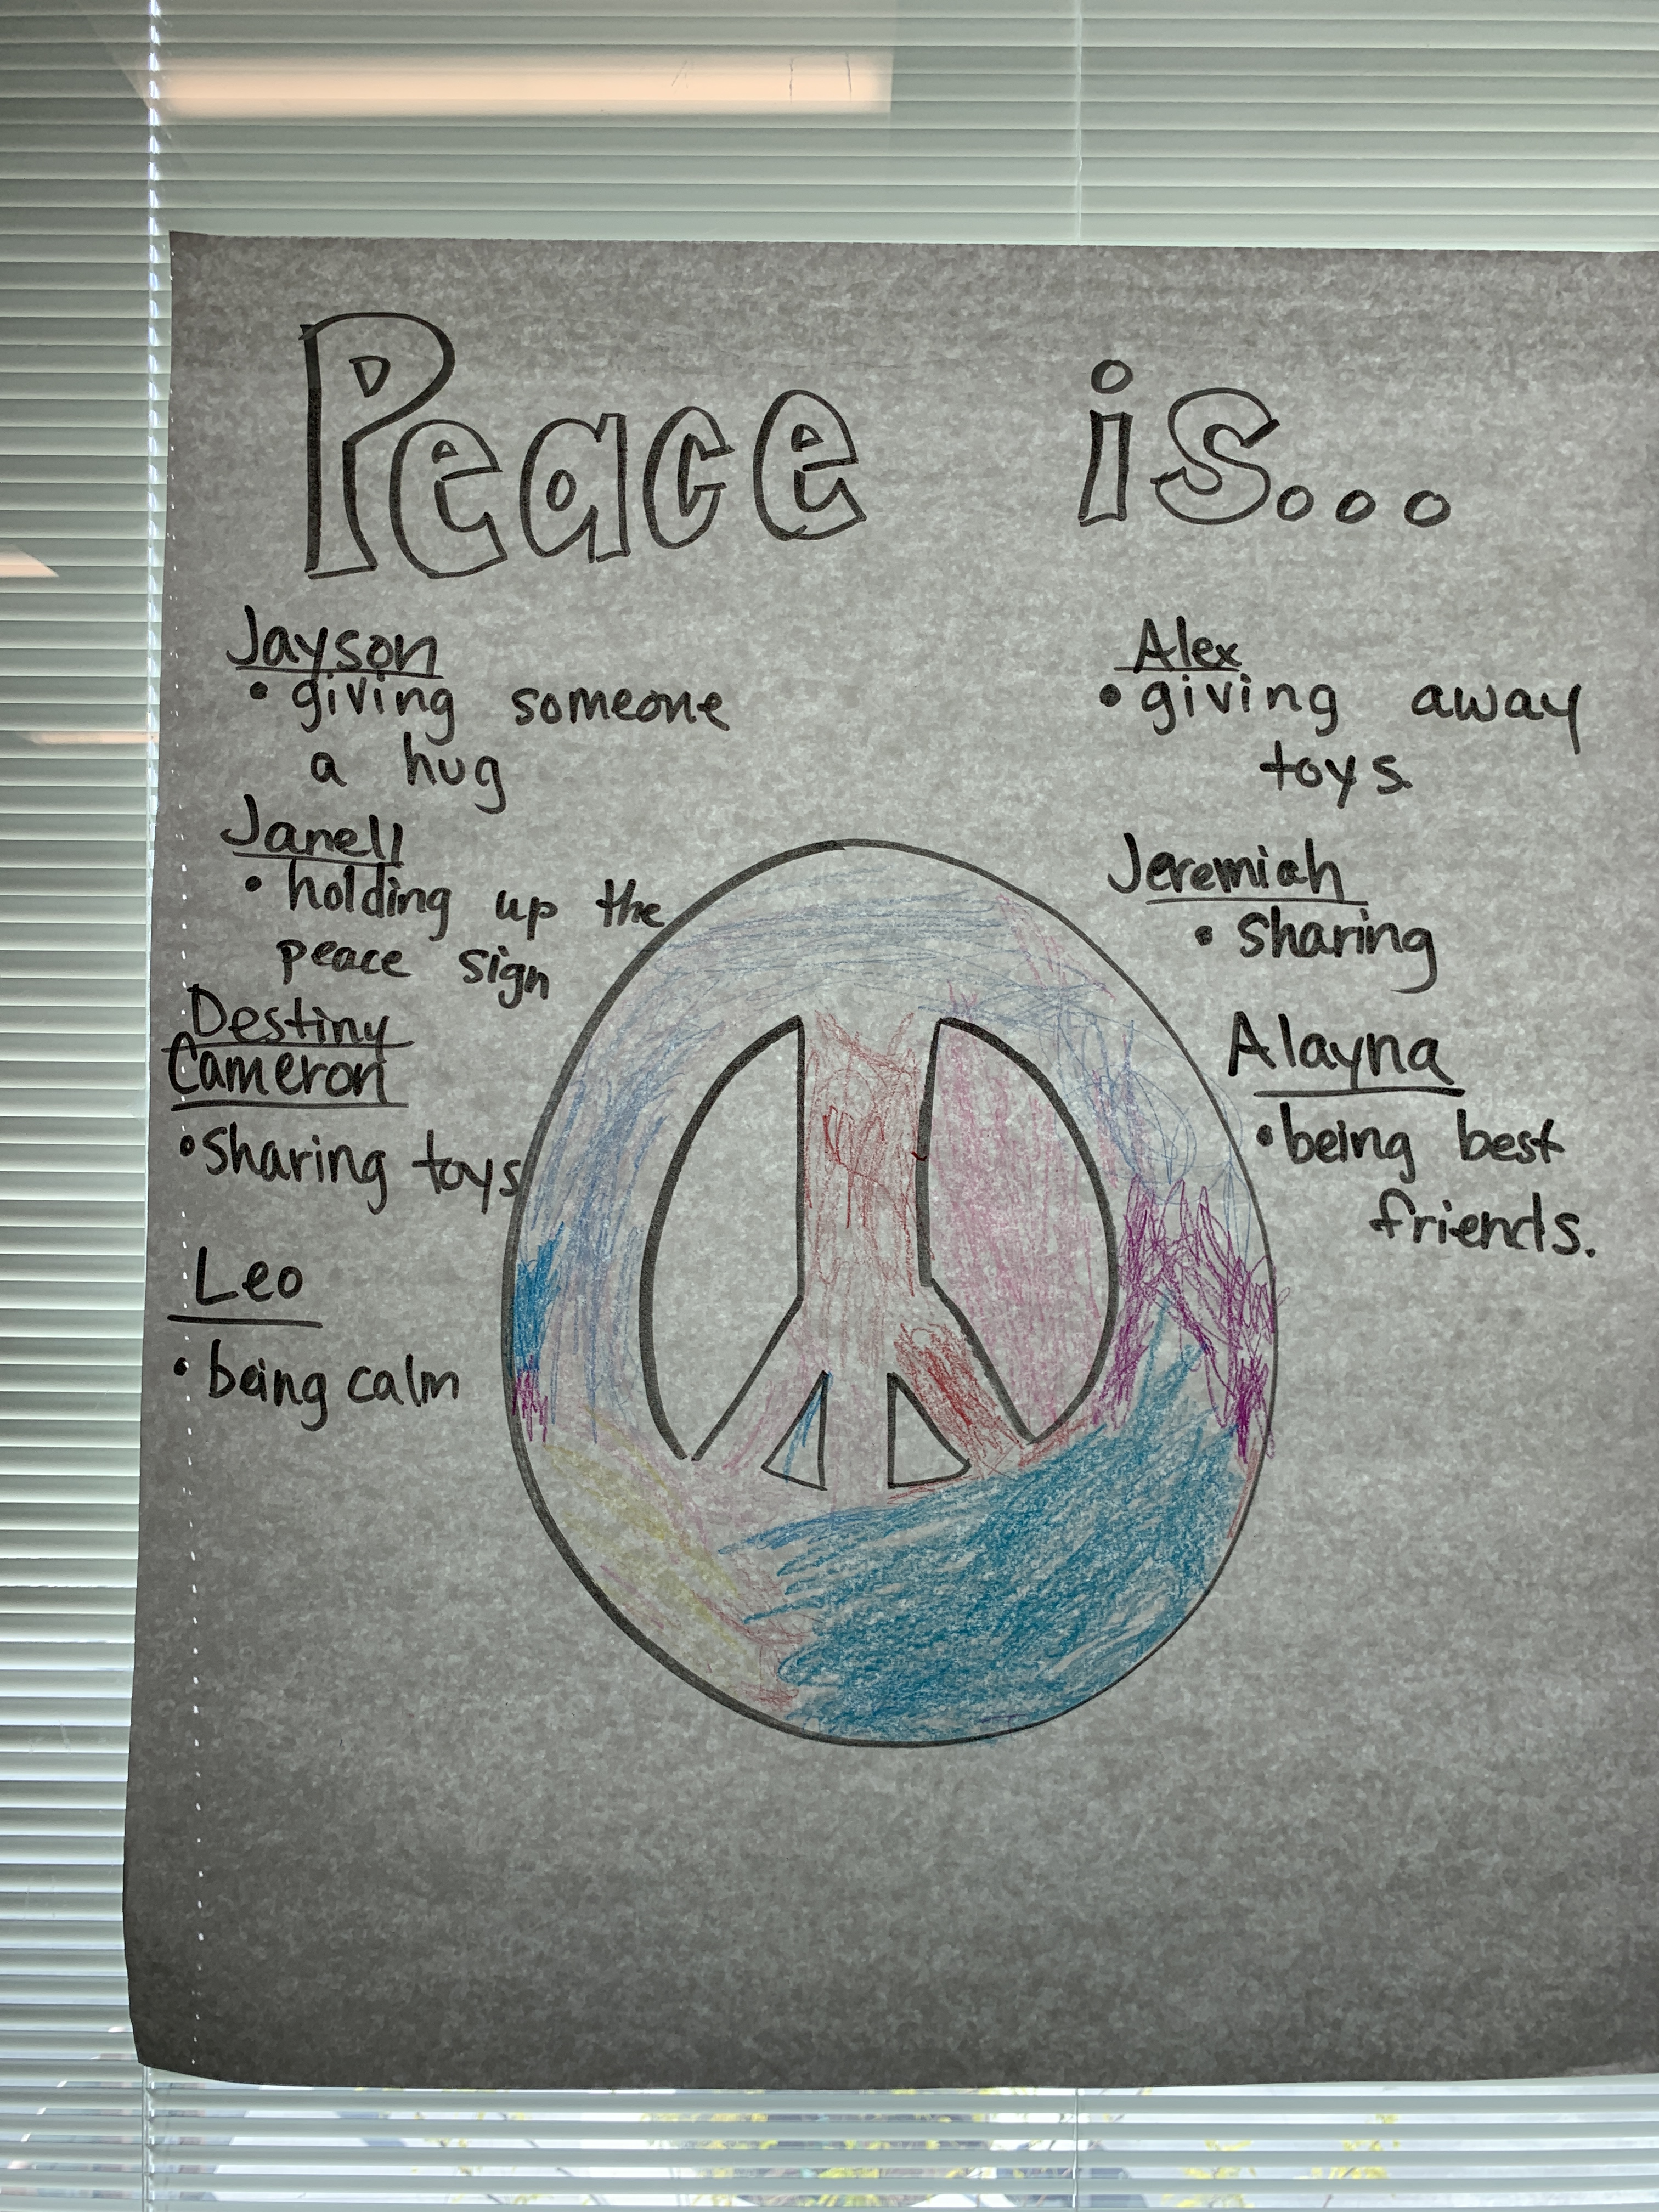 Peace is...
Jayson
• giving someone
a hug
Janell
• holding up the
peace sign
Destiny
Cameron
• sharing toys
Leo
• being calm
Alex
• giving away
toys.
Jeremiah
• sharing
Alayna
• being best
friends.